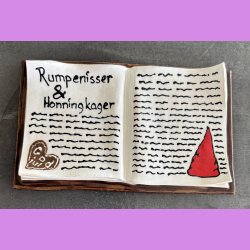 Rumpenisser
&
Honningkager